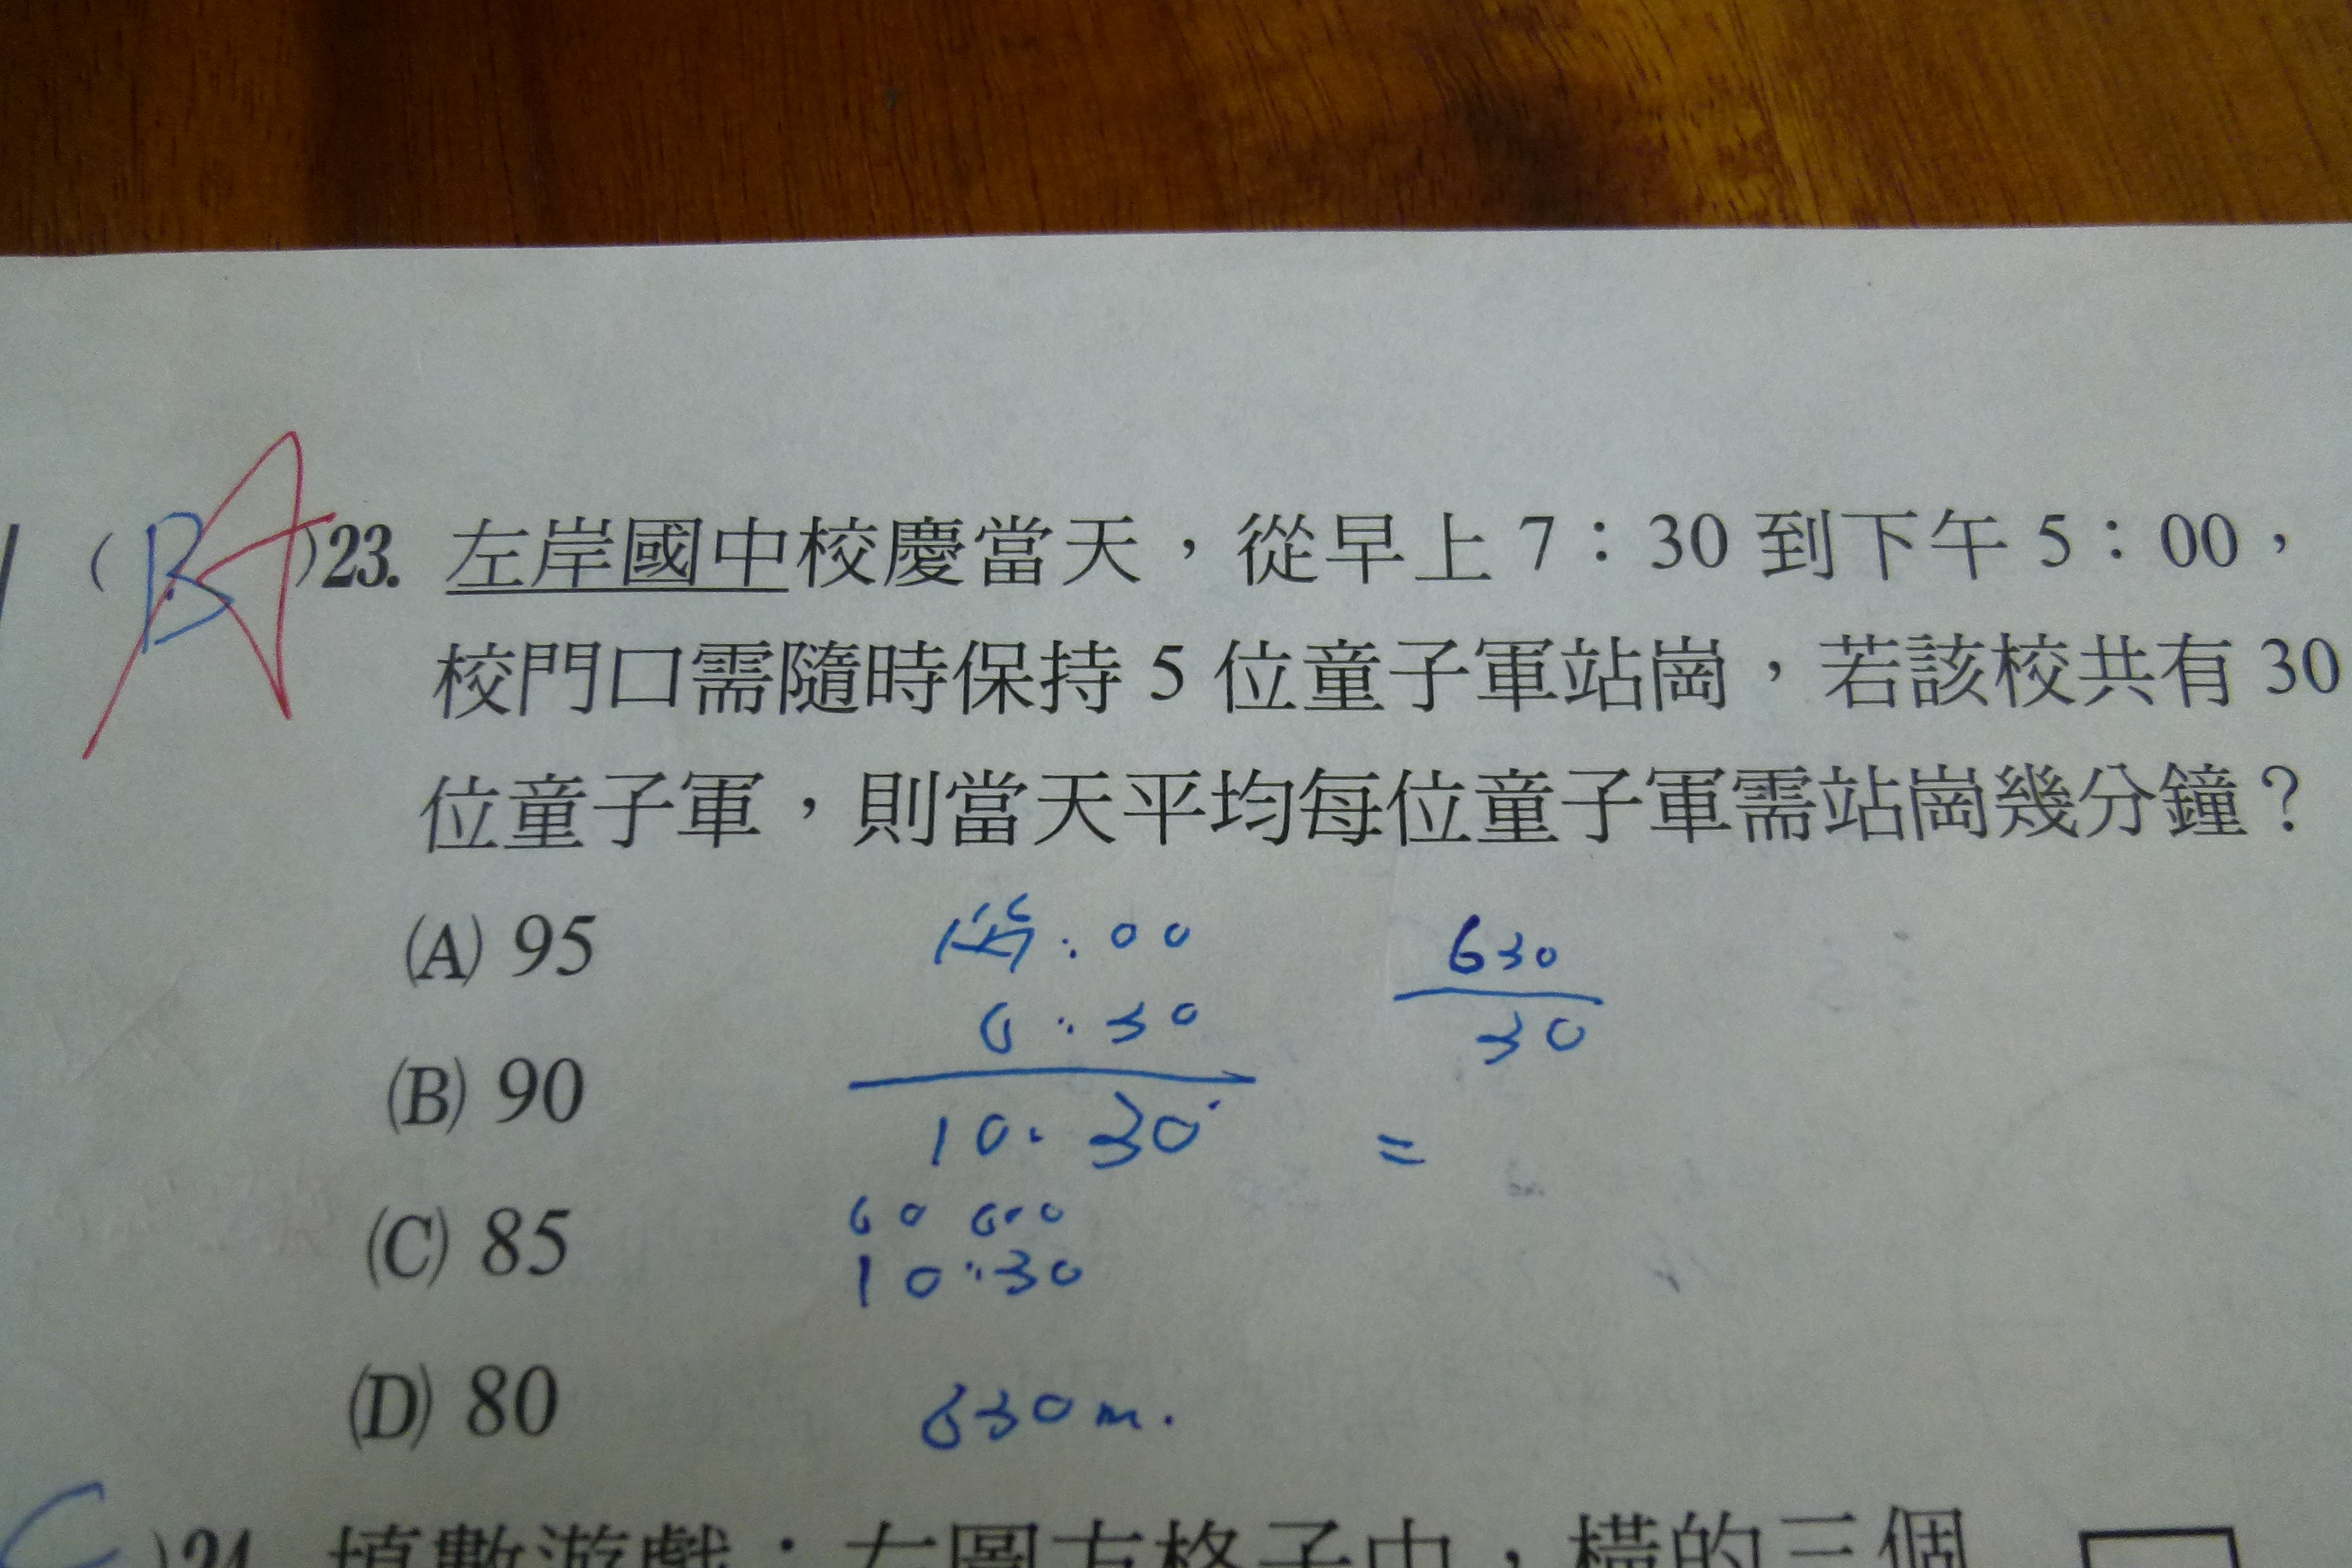 (BA)23. 左岸國中校慶當天，從早上 7：30 到下午 5：00，
校門口需隨時保持 5 位童子軍站崗，若該校共有 30
位童子軍，則當天平均每位童子軍需站崗幾分鐘？
(A) 95
(B) 90
(C) 85
(D) 80
:00
6:30
10.30
60 600
10:30
630m.
630
30
=
C )24. 填數遊戲：右圖方格子中，橫的三個